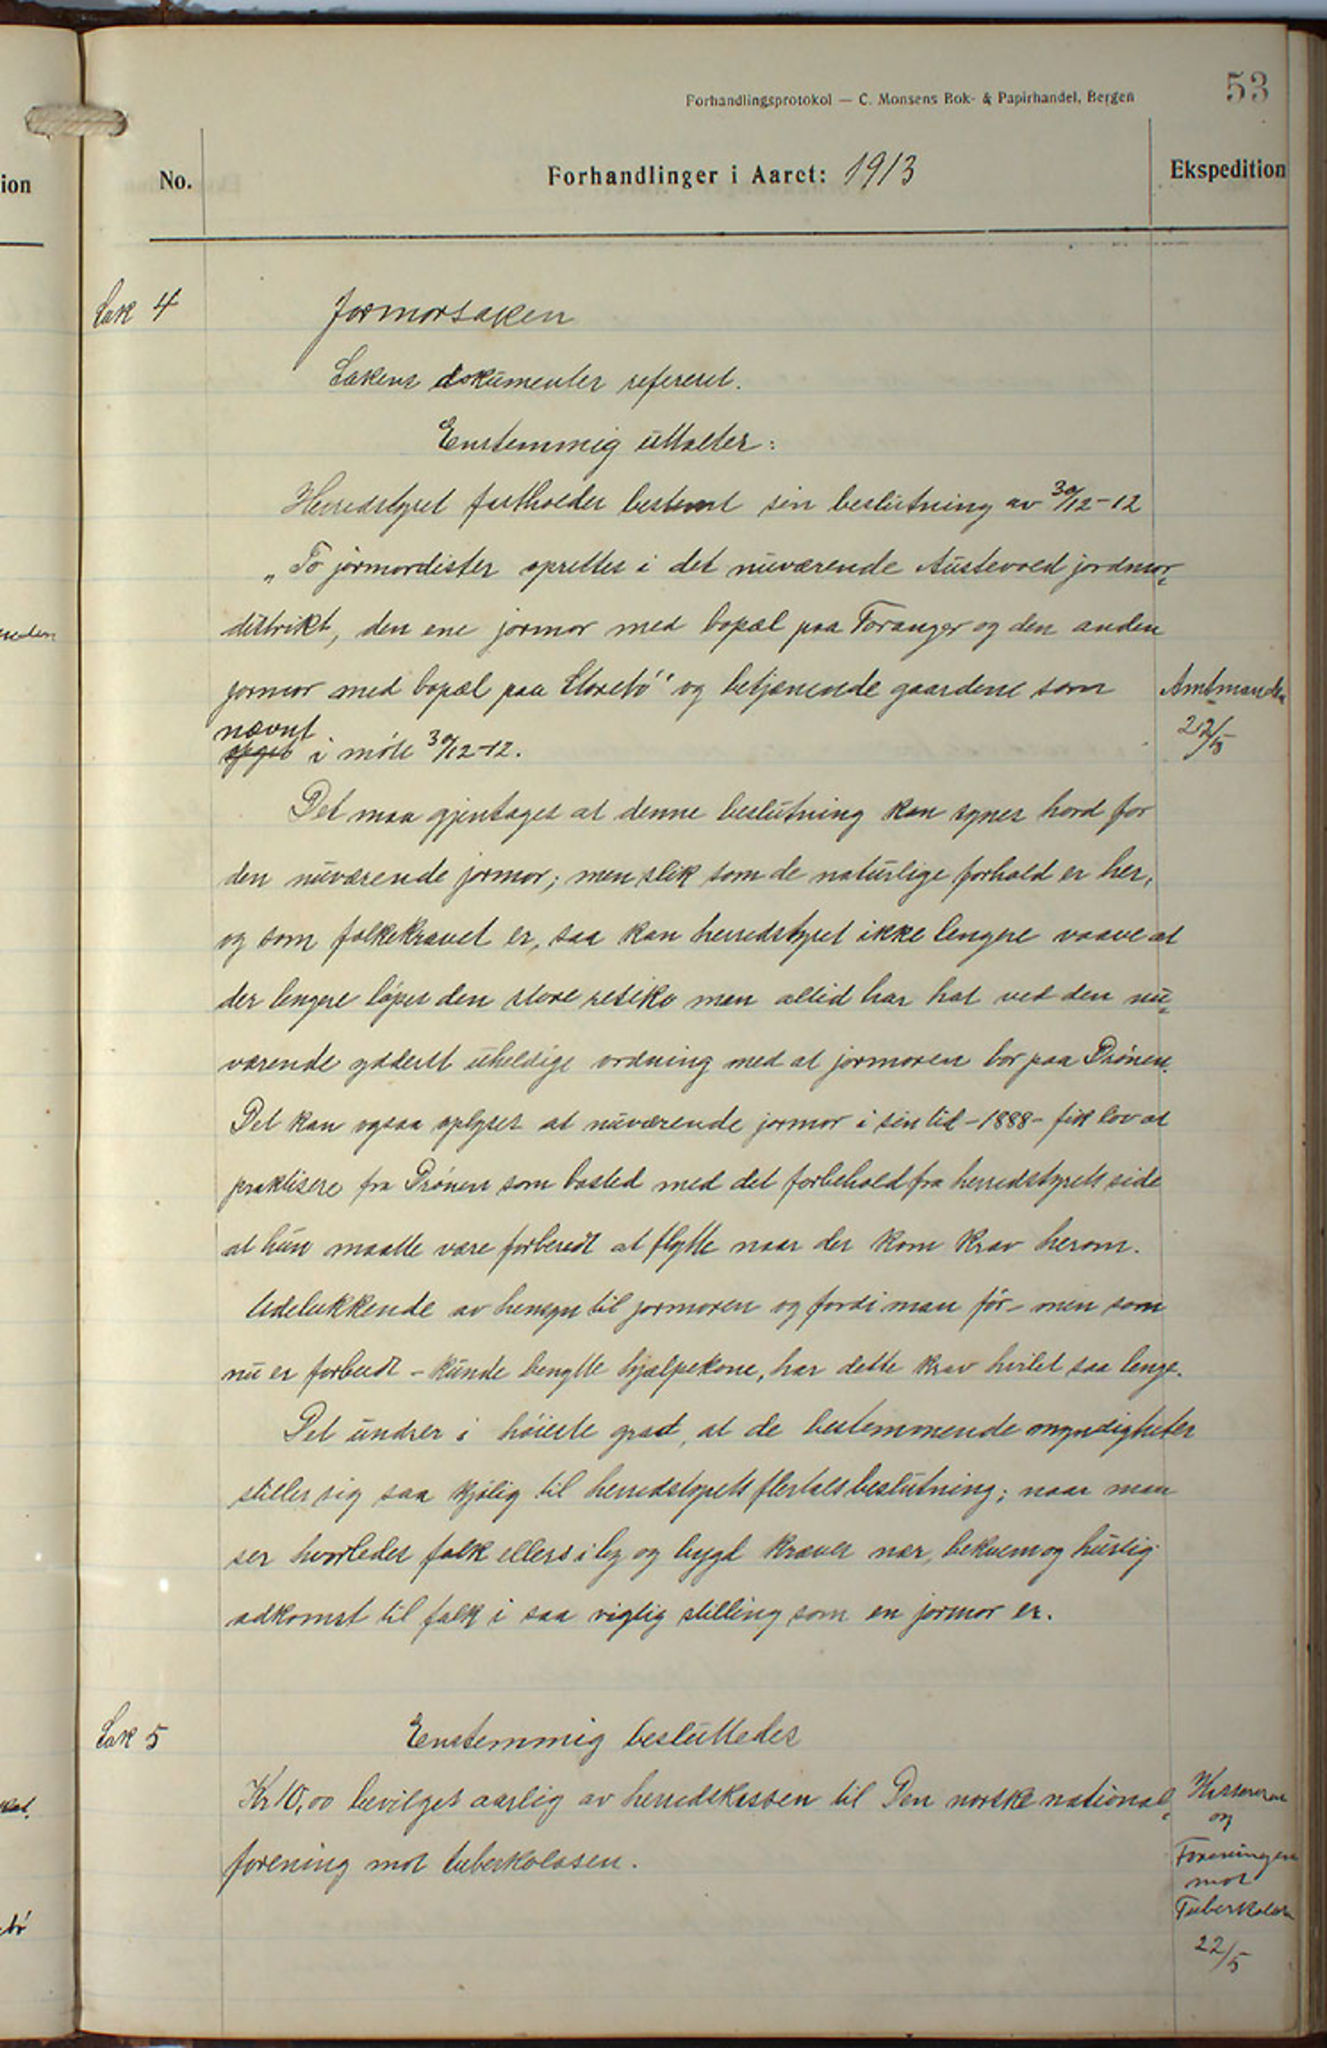 53
Forhandlingsprotokol — C. Monsens Bok- & Papirhandel, Bergen
No.
Forhandlinger i Aaret: 1913
Ekspedition
Sak 4
Jormorsaken
Sakens dokumenter referert.
Enstemmig uttaltes:
Herredstyret fastholder bestemt sin beslutning av 30/12-12
„To jormordister oprettes i det nuværende Austevold jordmor-
distrikt, den ene jormor med bopæl paa Toranger og den anden
jormor med bopæl paa Storebö" og betjenende gaardene som
nævnt
i möte 30/12-12.
Amtmanden
22/5
Det maa gjentages at denne beslutning kan synes hard for
den nuværende jormor; men slik som de naturlige forhold er her,
og som folkekravet er, saa kan herredstyret ikke lengere vaave at
der lengere löpes den store resiko man altid har hat ved den nu-
værende yderst uheldige ordning med at jormoren bor paa Drönen.
Det kan ogsaa oplyses at nuværende jormor i sin tid -1888- fik lov at
praktisere fra Drönen som bosted med det forbehold fra herredstyrets side
at hun maatte være forberedt at flytte naar der kom krav herom.
Udelukkende av hensyn til jormoren og fordi man för - men som
nu er forbudt - kunde benytte hjælpekone, har dette krav hvilet saa lenge.
Det undrer i höieste grad, at de bestemmende myndigheter
stiller sig saa kjölig til herredstyrets flertalsbeslutning; naar man
ser hvorledes folk ellers i by og bygd kræver nær, bekvem og hurtig
adkomst til folk i saa vigtig stilling som en jormor er.
Sak 5
Enstemmig besluttedes
Kr 10,00 bevilges aarlig av herredskassen til Den norske national-
forening mot tuberkolosen.
Kassereren
og
Foreningen
mot
Tuberkolosen
22/5